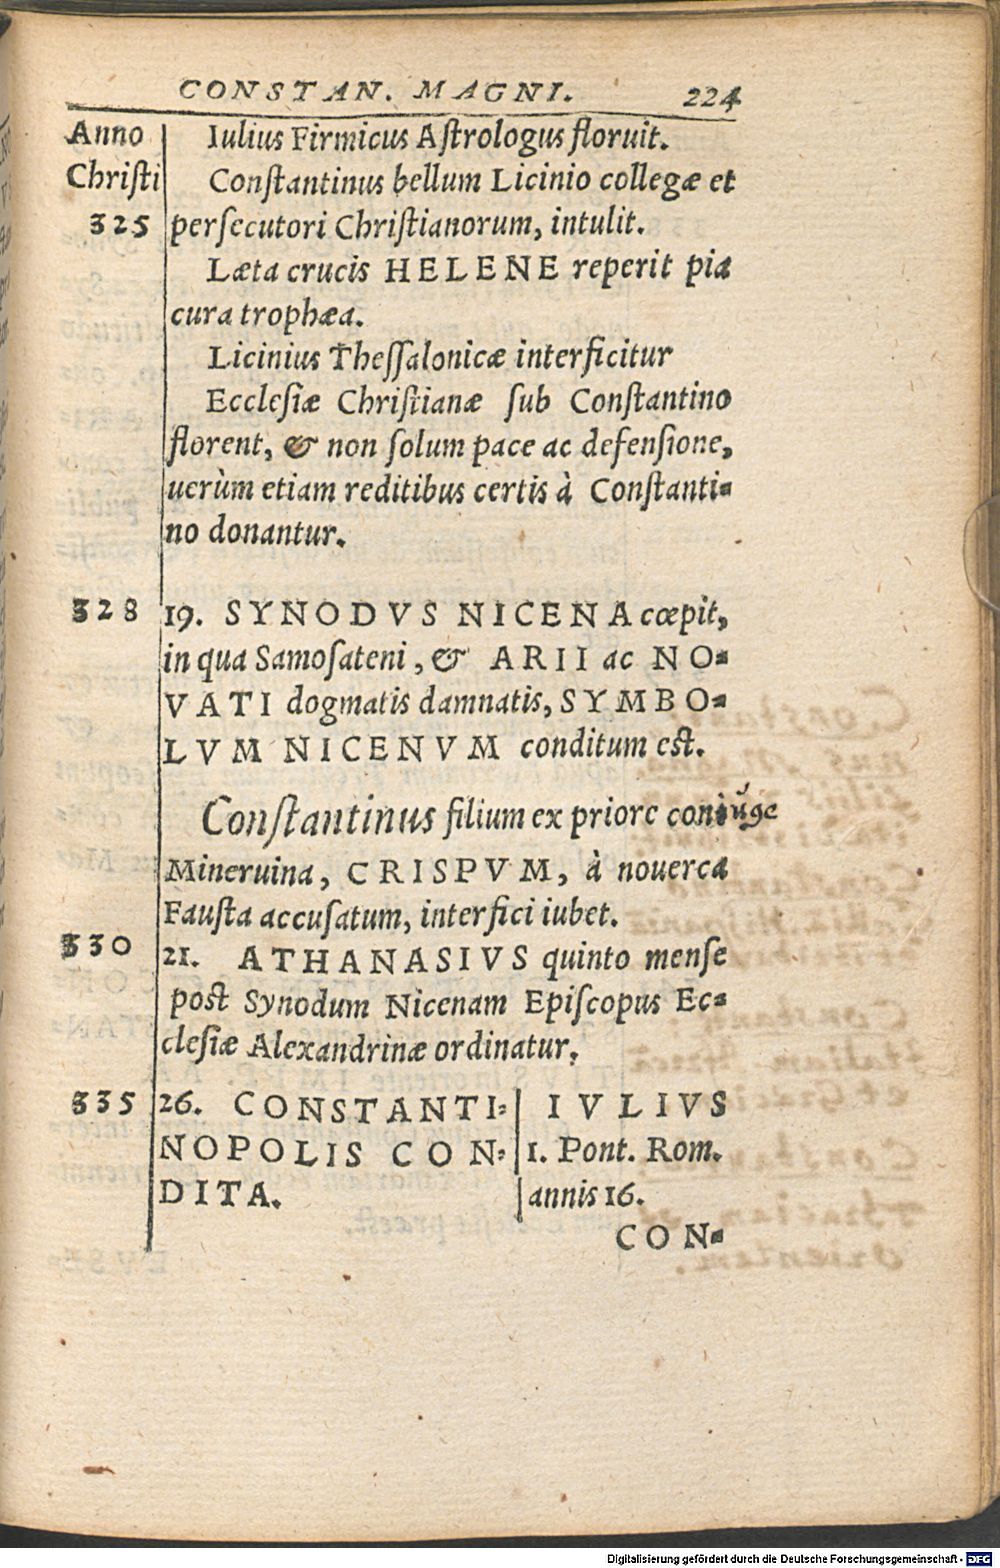 CONSTAN. MAGNI. 224
Anno Iulius Firmicus Aſtrologus floruit.
Chriſti Conſtantinus bellum Licinio collegæ et
325 perſecutori Chriſtianorum, intulit.
Læta crucis HELENE reperit pia
cura trophæa.
Licinius Theſſalonicæ interficitur
Eccleſiæ Chriſtianæ ſub Conſtantino
florent, & non ſolum pace ac defenſione,
uerùm etiam reditibus certis à Conſtanti-
no donantur.
328 19. SYNODVS NICENA cœpit,
in qua Samoſateni, & ARII ac NO-
VATI dogmatis damnatis, SYMBO-
LVM NICENVM conditum eſt.
Conſtantinus filium ex priore coniuge
Mineruina, CRISPVM, à nouerca
Fauſta accuſatum, interfici iubet.
330 21. ATHANASIVS quinto menſe
poſt Synodum Nicenam Epiſcopus Ec-
cleſiæ Alexandrinæ ordinatur.
335 26. CONSTANTI- IVLIVS
NOPOLIS CON- 1. Pont. Rom.
DITA. annis 16.
CON-
Digitalisierung gefördert durch die Deutsche Forschungsgemeinschaft - DFG